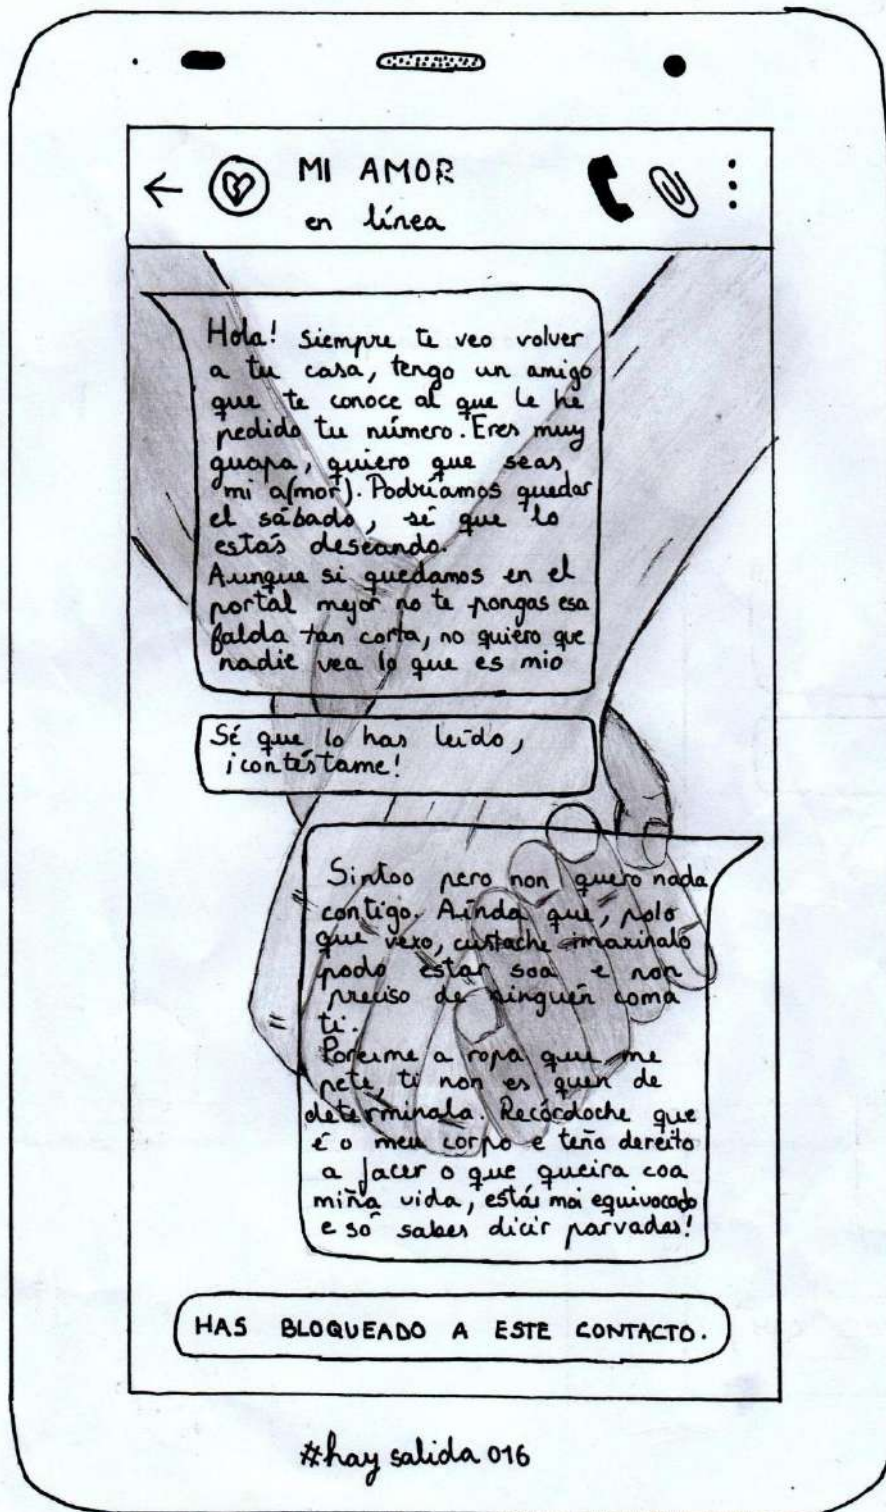 MI AMOR
en línea
Hola! siempre te veo volver
a tu casa, tengo un amigo
que te conoce al que le he
pedido tu número. Eres muy
guapa, quiero que seas
mi a(mor). Podríamos quedar
el sábado, sé que lo
estás deseando.
Aunque si quedamos en el
portal mejor no te pongas esa
falda tan corta, no quiero que
nadie vea lo que es mio
Sé que lo has leído,
¡contéstame!
Sintoo pero non quero nada
contigo. Aínda que, polo
que vexo, custache imaxinalo
podo estar soa e non
preciso de ninguén coma
ti.
Poreime a ropa que me
pete, ti non es quen de
determinala. Recórdoche que
é o meu corpo e teño dereito
a facer o que queira coa
miña vida, estás moi equivocado
e só sabes dicir parvadas!
HAS BLOQUEADO A ESTE CONTACTO.
#hay salida 016